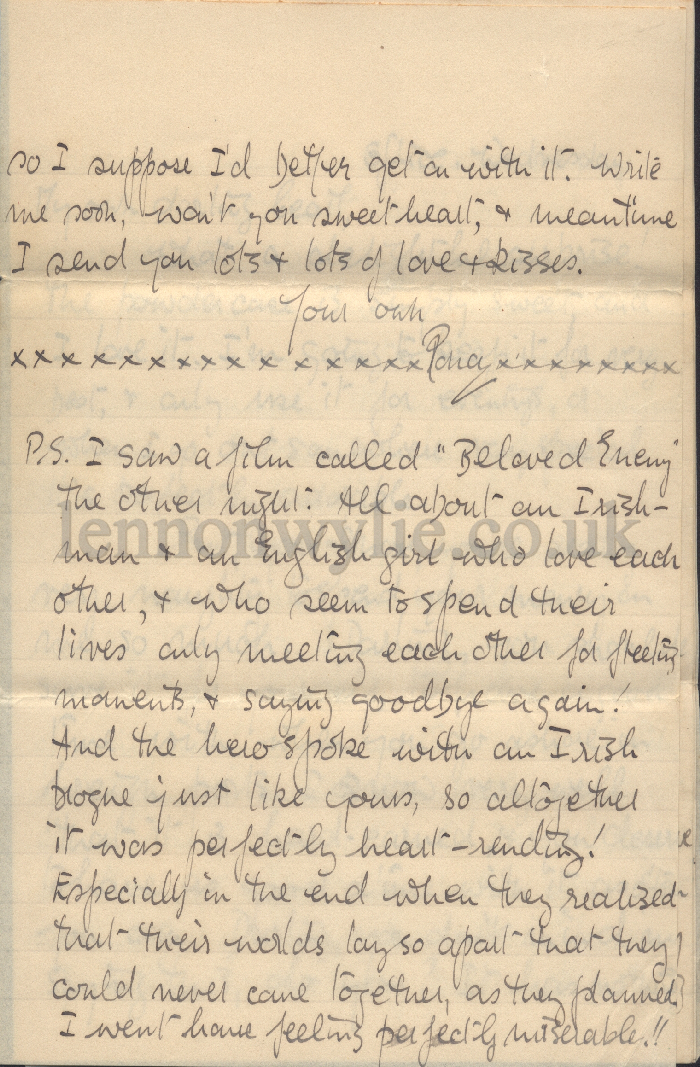 so I suppose I'd better get on with it. Write
me soon, won't you sweetheart, & meantime
I send you lots & lots of love & kisses.
Your own
xxxxxxxxxxxxxxxxx Rona xxxxxxxxx
P.S. I saw a film called "Beloved Enemy"
the other night. All about an Irish-
lennonwylie.co.uk
man & an English girl who love each
other, & who seem to spend their
lives only meeting each other for fleeting
moments, & saying goodbye again!
And the hero spoke with an Irish
brogue just like yours, so altogether
it was perfectly heart-rending!
Especially in the end when they realized
that their worlds lay so apart that they
could never come together, as they planned.
I went home feeling perfectly miserable.!!